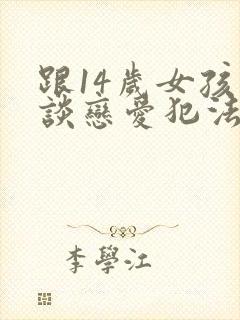 跟14歲女孩
談戀愛犯法
李學江